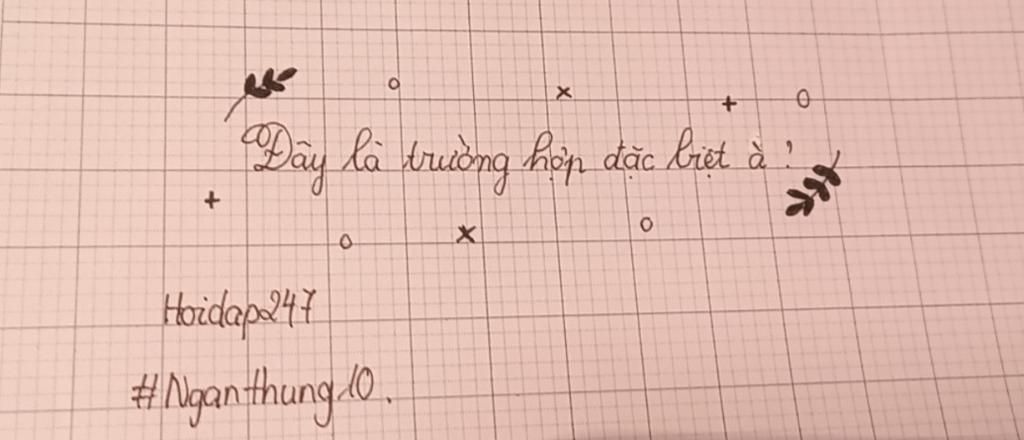 Đây là trường hợp đặc biệt à?
Hoidap247
#Nganthung10.